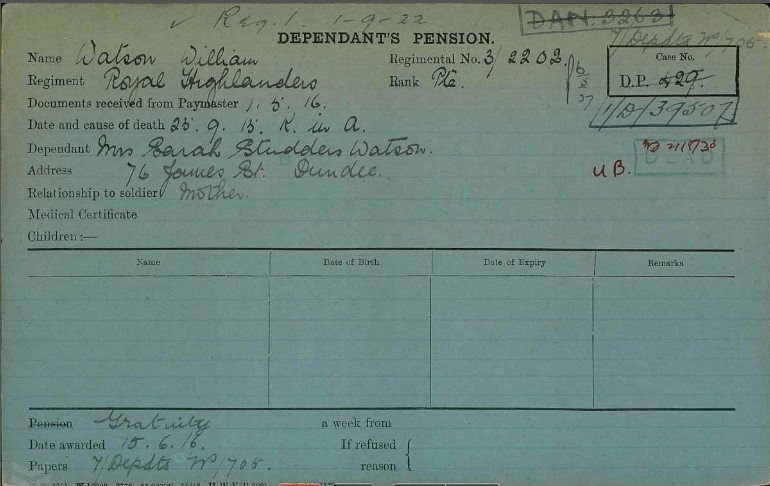 ✓ Reg. 1. 1-9-22
DAN. 3263
DEPENDANT'S PENSION.
7/Depdts W/705.
Name Watson William
Regimental No. 3/2202.
Case No.
Regiment Royal Highlanders
Rank Pte.
D.P. 429.
Documents received from Paymaster 1. 5. 16.
1/D/39507
Date and cause of death 25. 9. 15. K. in A.
Dependant Mrs Sarah Studders Watson.
DEAD
Address 76 James St. Dundee.
UB.
Relationship to soldier Mother.
Medical Certificate
Children :—
Name Date of Birth Date of Expiry Remarks
Pension Gratuity a week from
Date awarded 15. 6. 16. If refused
Papers 7/Depdts W/705. reason